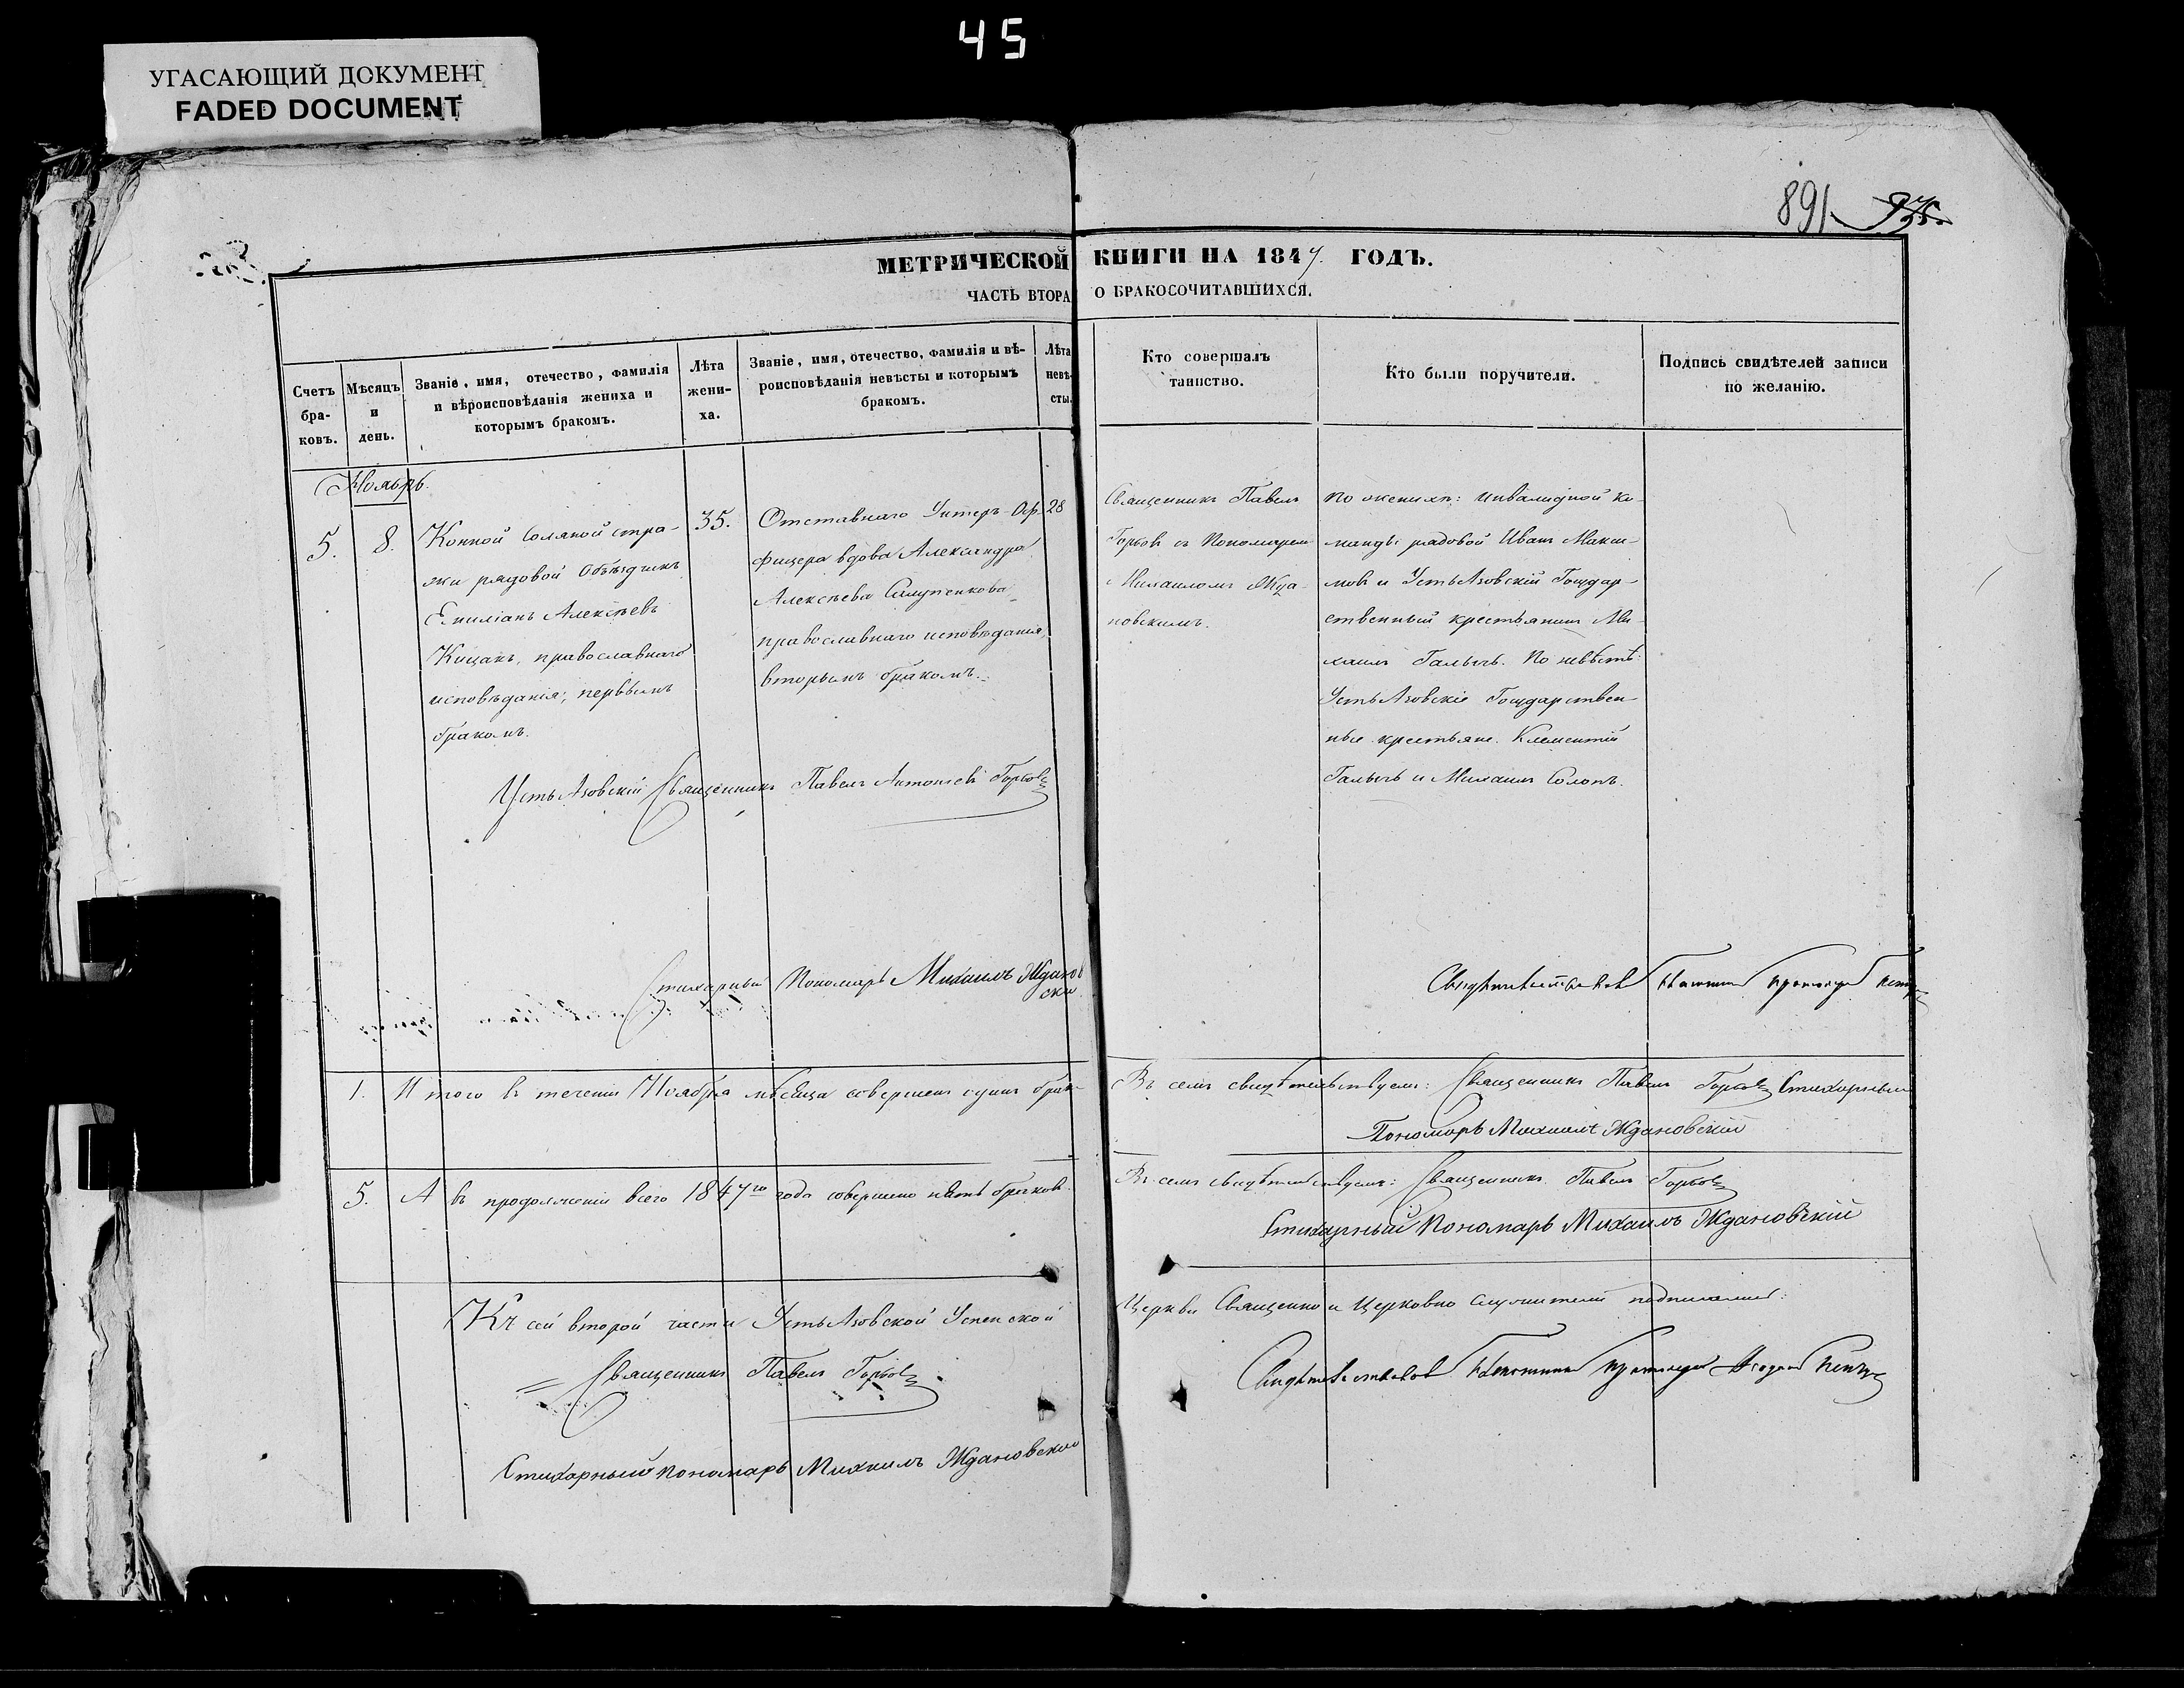 45
УГАСАЮЩИЙ ДОКУМЕНТ
FADED DOCUMENT
891
МЕТРИЧЕСКОЙ КНИГИ НА 1847. ГОДЪ.
ЧАСТЬ ВТОРА О БРАКОСОЧИТАВШИХСЯ.
Счетъ
бра-
ковъ.
Мѣсяцъ
и
день.
Званіе, имя, отечество, фамилія
и вѣроисповѣданія жениха и
которымъ бракомъ.
Лѣта
жени-
ха.
Званіе, имя, отечество, фамилія и вѣ-
роисповѣданія невѣсты и которымъ
бракомъ.
Лѣта
невѣ-
сты.
Кто совершалъ
таинство.
Кто были поручители.
Подпись свидѣтелей записи
по желанію.
Ноябрь.
5.
8.
Конной Соляной стра-
жи рядовой Объѣздчикъ
Емиліанъ Алексѣевъ
Кицакъ, православнаго
исповѣданія, первымъ
бракомъ.
35.
Отставнаго Унтеръ-Оф-
фицера вдова Александра
Алексѣева
православнаго исповѣданія,
вторымъ бракомъ.
28
Священникъ Павелъ
Горбовъ съ Пономаремъ
Михаиломъ Жда-
новскимъ.
По женихѣ: инвалидной ко-
манды рядовой Иванъ Макси-
мовъ и УстьАзовскій Государ-
ственный крестьянинъ Ми-
хаилъ Галычъ. По невѣстѣ:
УстьАзовскіе Государствен-
ные крестьяне. Клементій
Галычъ и Михаилъ Солопъ.
УстьАзовскій Священникъ Павелъ Антоніевъ Горбовъ
Стихарный Пономарь Михаилъ Жданов
ски
Свидѣтельствовалъ
1. Итого въ теченіи Ноября мѣсяца совершенъ одинъ бракъ
Въ семъ свидѣтельствуемъ: Священникъ Павелъ Горбовъ Стихарный
Пономарь Михаилъ Ждановскій
5. А въ продолженіи всего 1847го года совершено пять браковъ.
Въ семъ свидѣтельствуемъ: Священникъ Павелъ Горбовъ
Стихарный Пономарь Михаилъ Ждановскій
Къ сей второй части УстьАзовской Успенской
Церкви Священно и Церковно служители подписались:
Священникъ Павелъ Горбовъ
Свидѣтельствовалъ
Стихарный пономарь Михаилъ Ждановскій